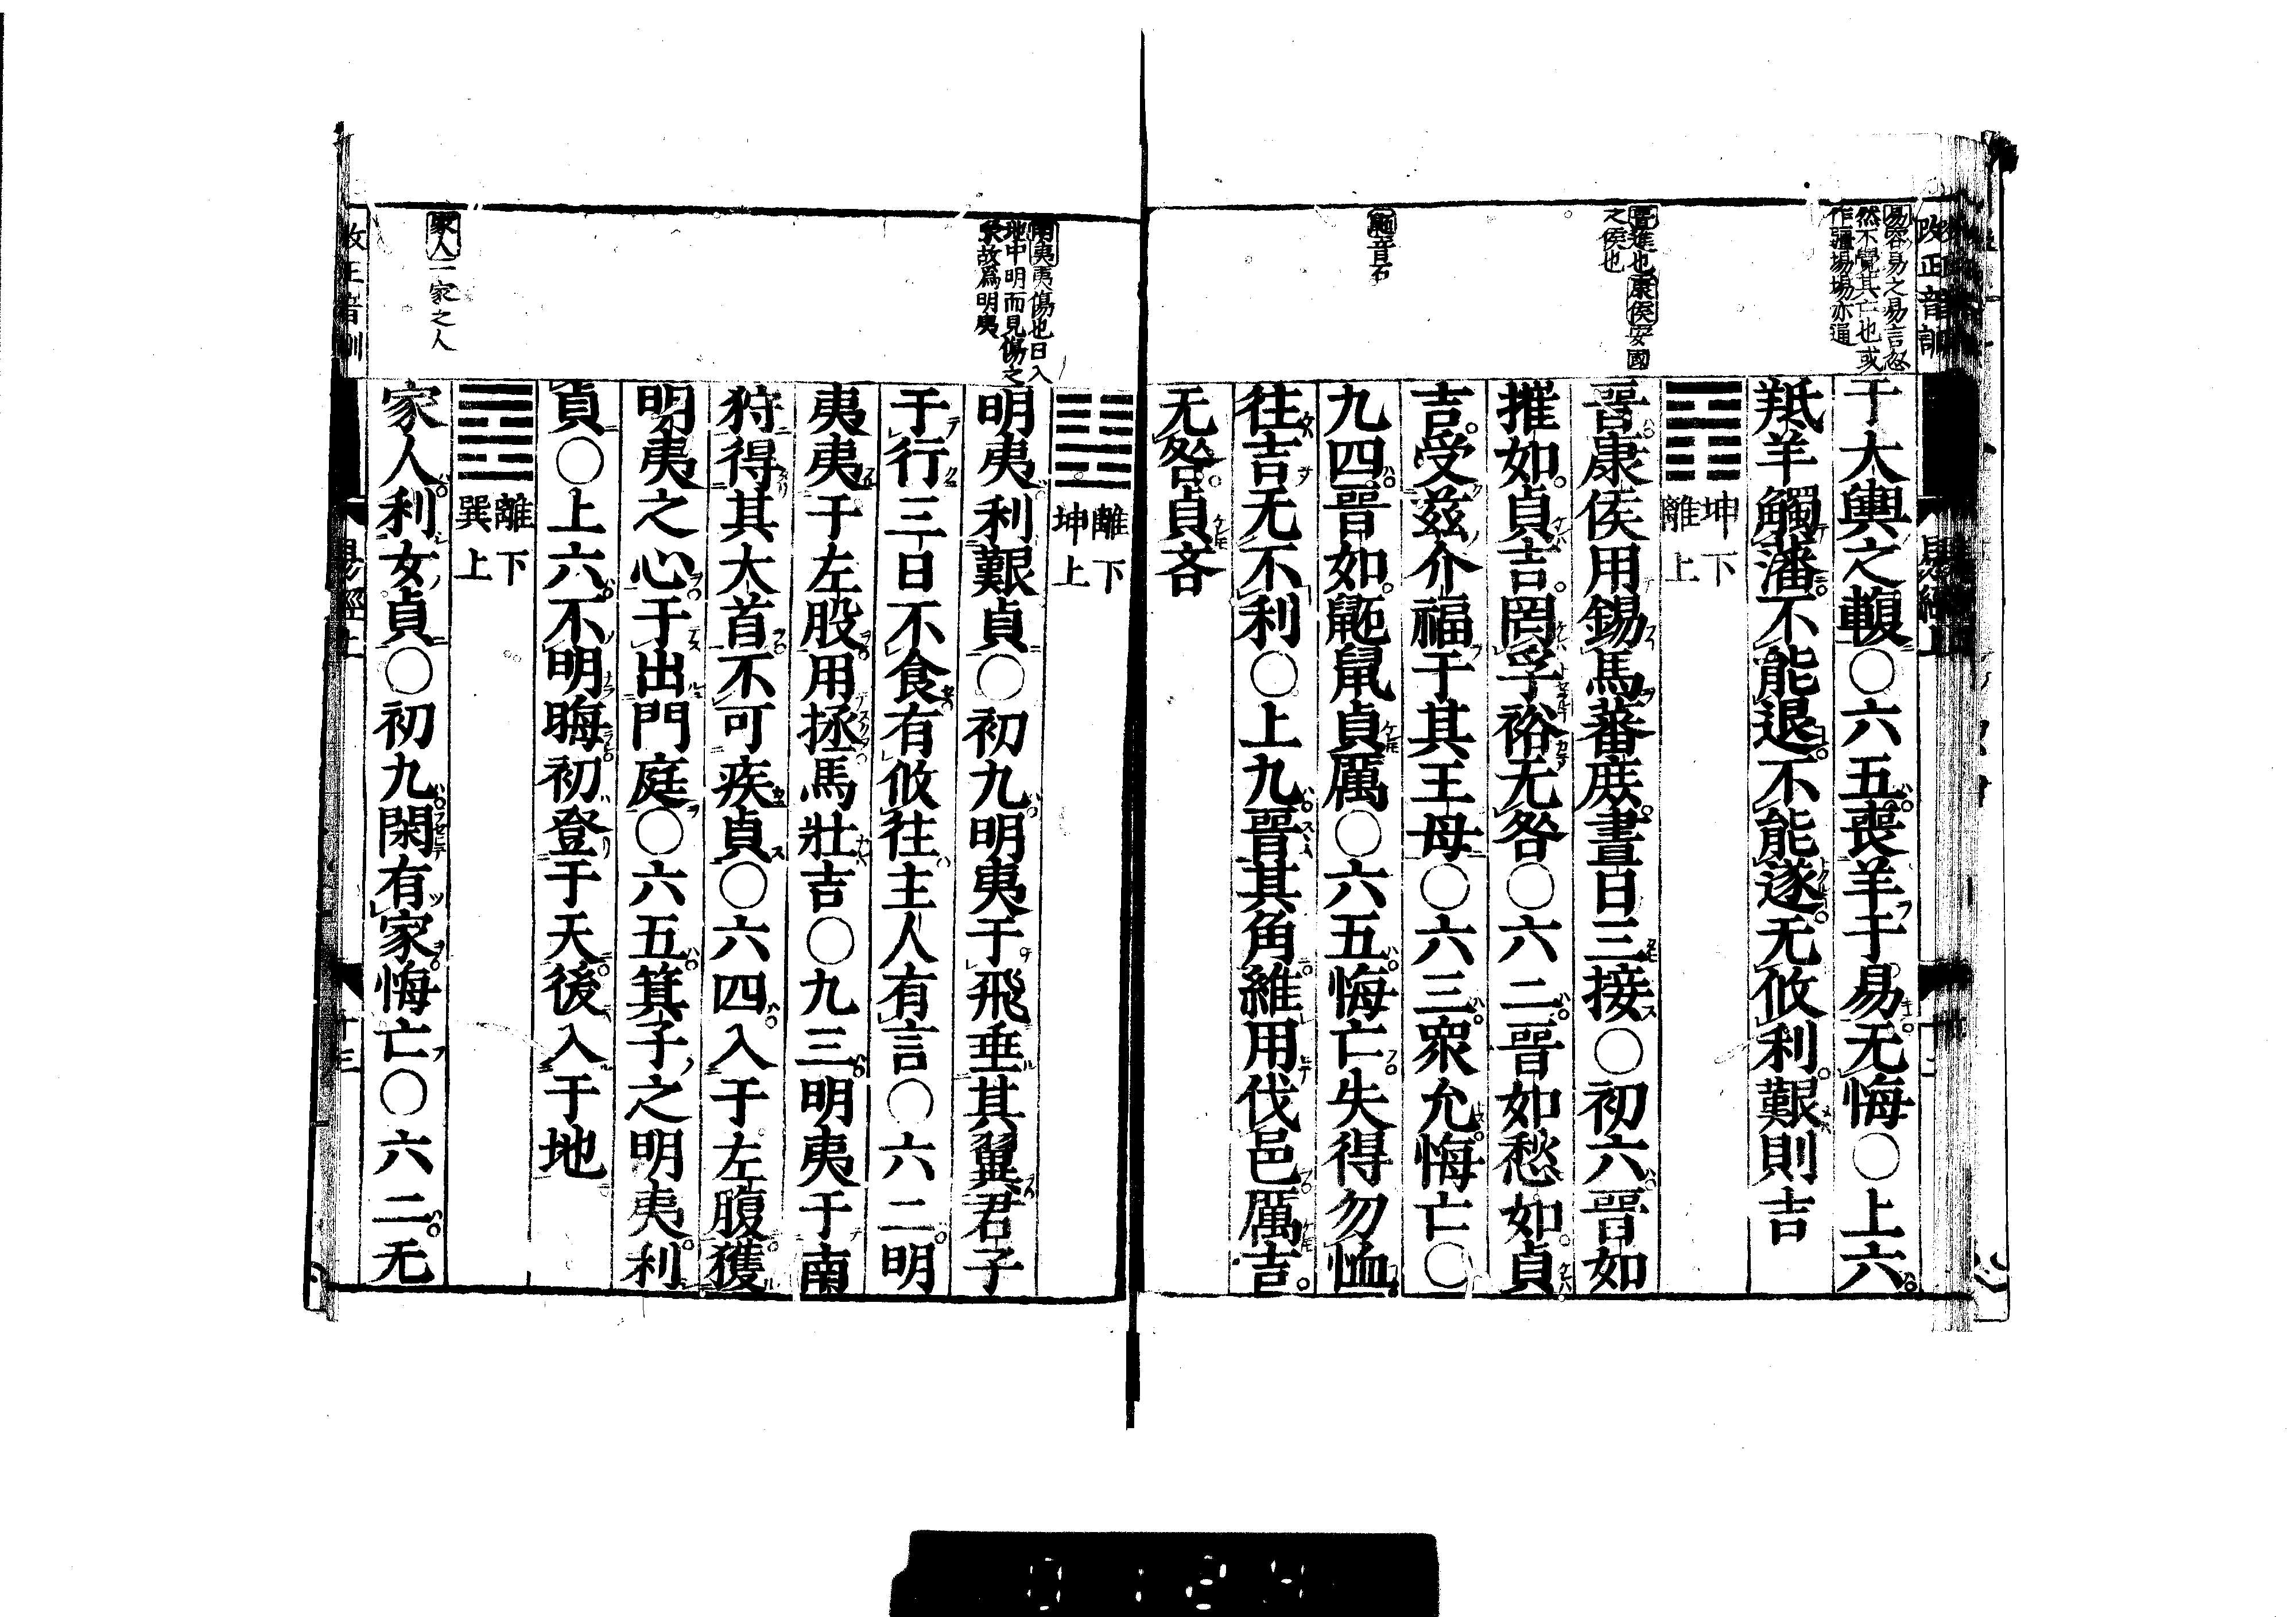 改正音訓
易容易之易言忽
然不覺其亡也或
作疆埸埸亦通
于大輿之輹○六五喪羊于易无悔○上六
羝羊觸藩不能退不能遂无攸利艱則吉
坤下
離上
晉進也康侯安國
之侯也
晉康侯用錫馬蕃庶晝日三接○初六晉如
摧如貞吉罔孚裕无咎○六二晉如愁如貞
吉受茲介福于其王母○六三衆允悔亡○
鼫音石
九四晉如鼫鼠貞厲○六五悔亡失得勿恤
往吉无不利○上九晉其角維用伐邑厲吉
无咎貞吝
離下
坤上
明夷夷傷也日入
地中明而見傷之
象故爲明夷
明夷利艱貞○初九明夷于飛垂其翼君子
于行三日不食有攸往主人有言○六二明
夷夷于左股用拯馬壯吉○九三明夷于南
狩得其大首不可疾貞○六四入于左腹獲
明夷之心于出門庭○六五箕子之明夷利
貞○上六不明晦初登于天後入于地
離下
巽上
家人一家之人
家人利女貞○初九閑有家悔亡○六二无
改正音訓
易經上
十三